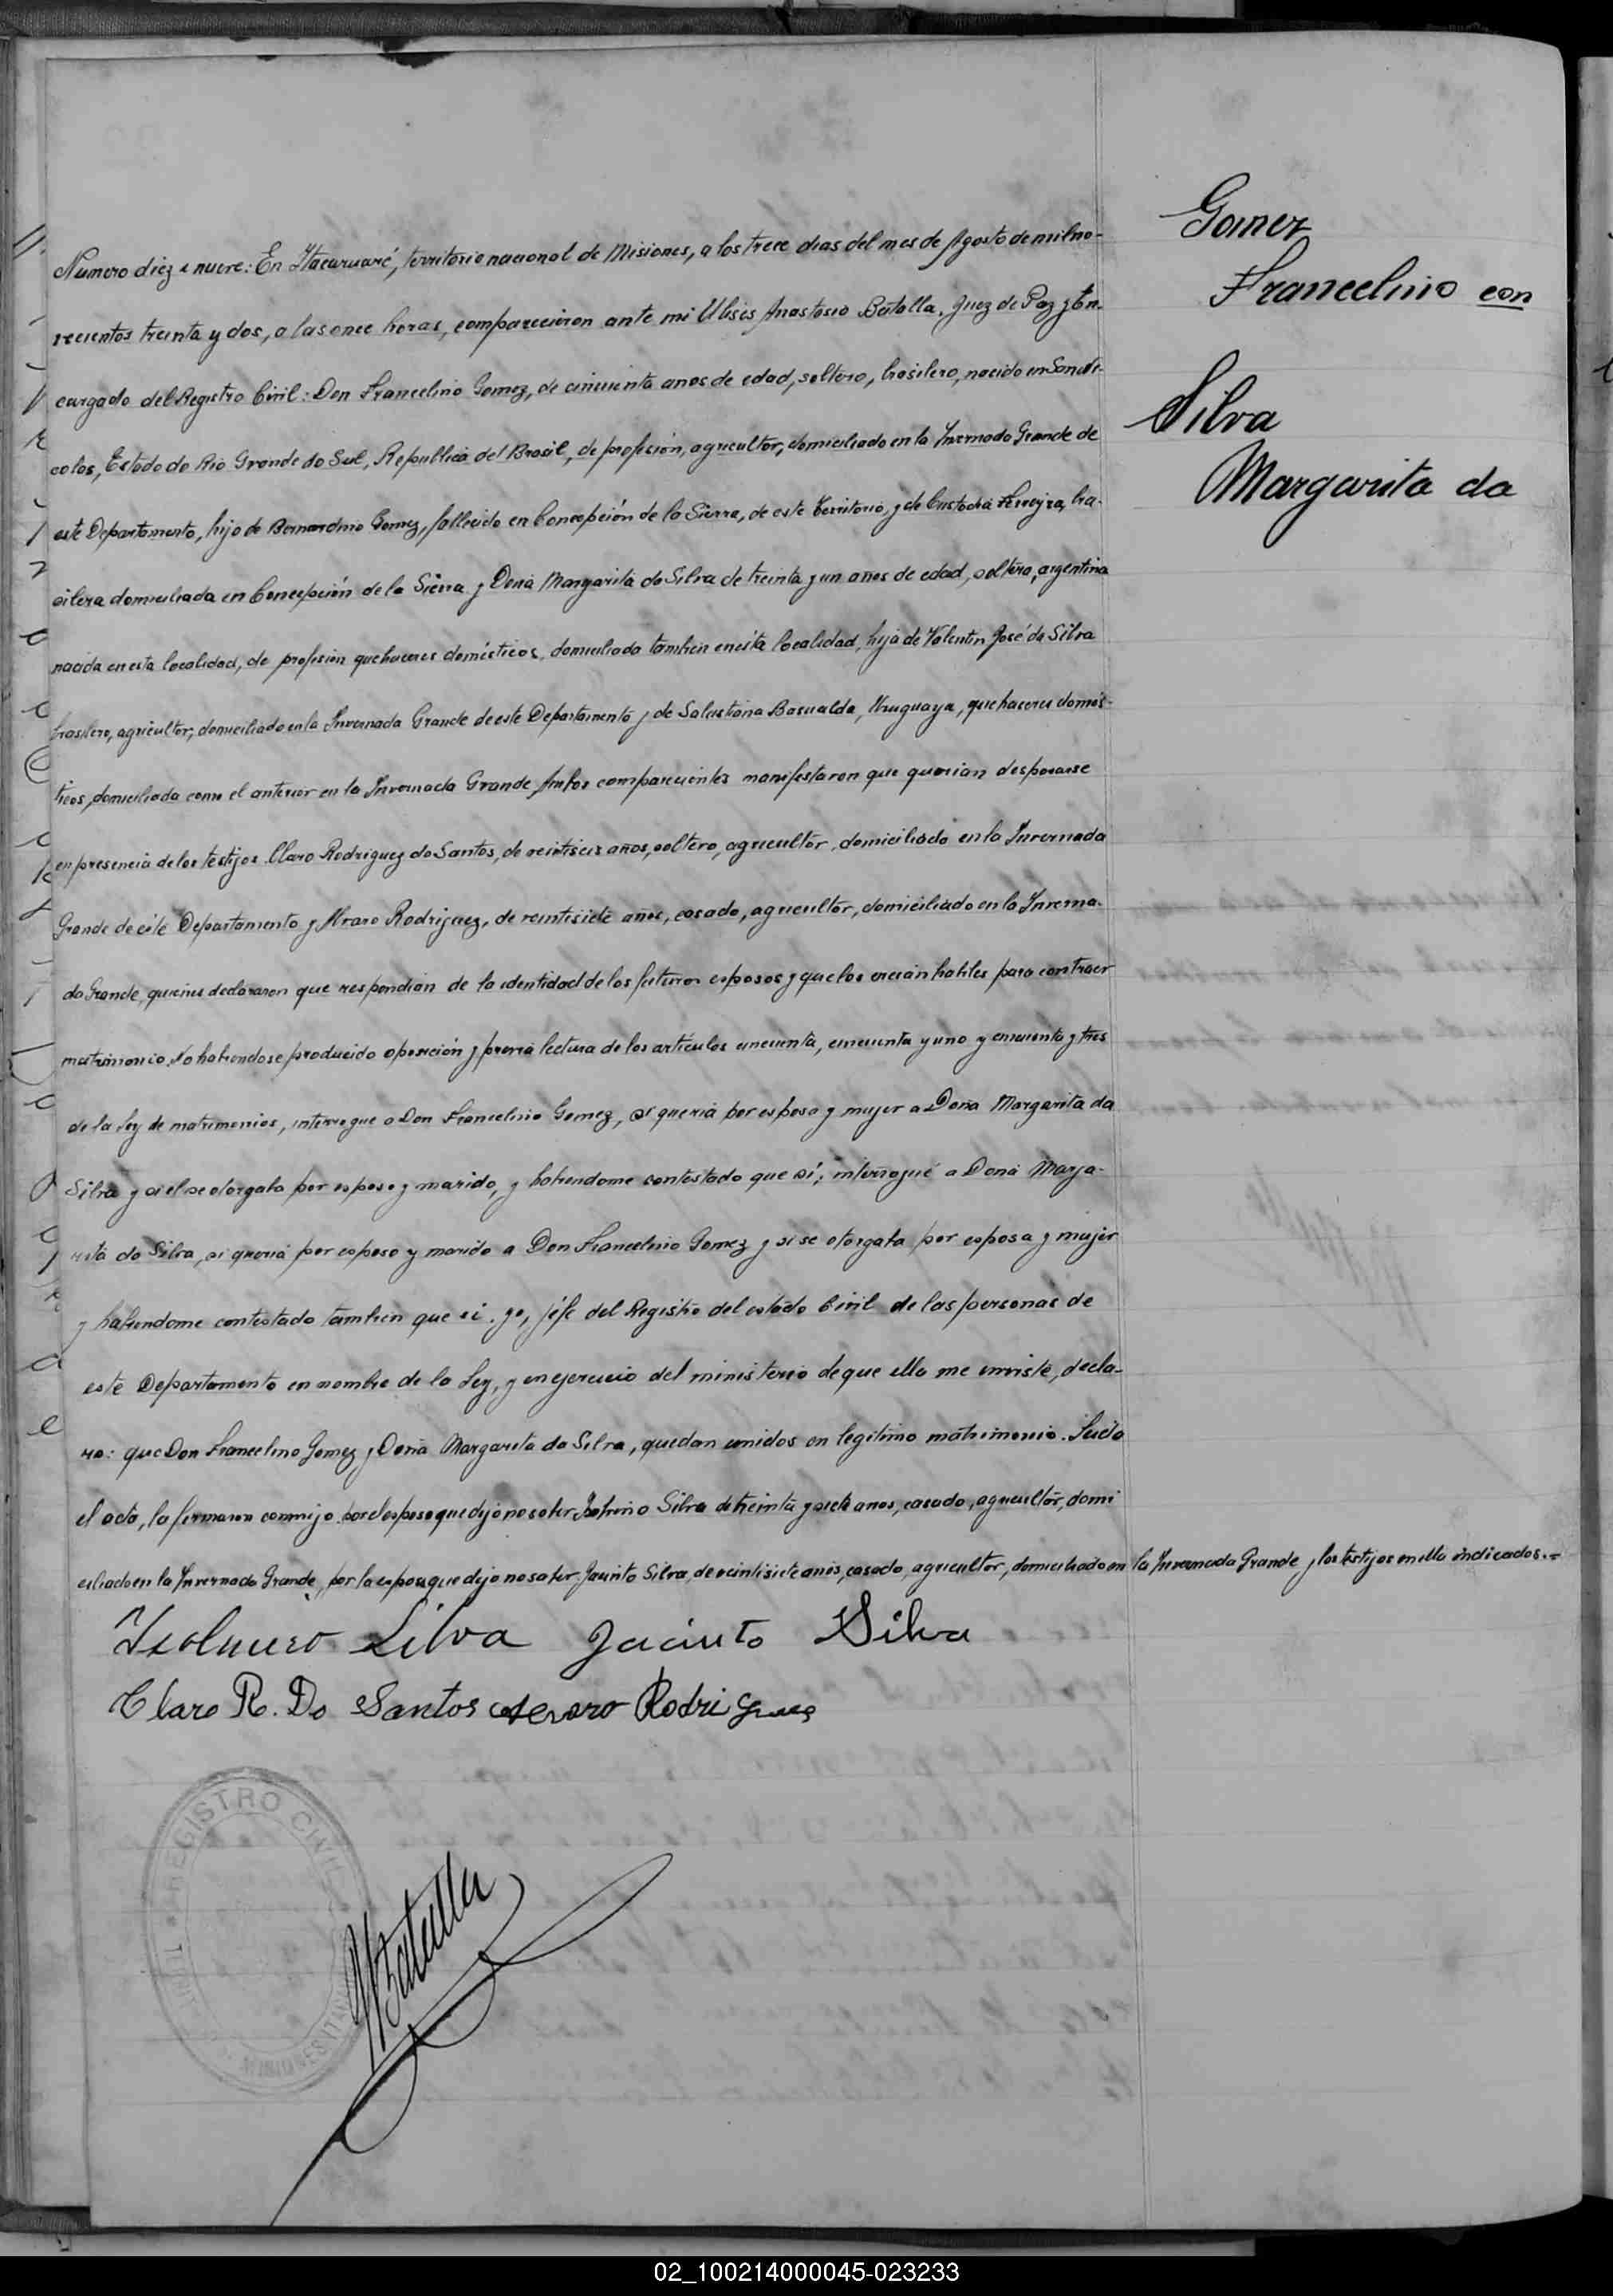 Gomez
Francelino con
Silva
Margarita da
Numero diez e nueve: En Itacaruaré, territorio nacional de Misiones, a los trece dias del mes de Agosto de mil no-
vecientos treinta y dos, a las once horas, comparecieron ante mi Ulises Anastasio Batalla, Juez de Paz y En-
cargado del Registro Civil: Don Francelino Gomez, de cincuenta anos de edad, soltero, brasilero, nacido en
Estado do Rio Grande do Sul, Republica del Brasil, de profesión, agricultor, domiciliado en la Invernada Grande de
este Departamento, hijo de Bernardino Gomez, fallecido en Concepción de la Sierra, de este Territorio, y de Custodia Ferreyra, bra-
silera domiciliada en Concepción de la Sierra y Dona Margarita da Silva de treinta y un años de edad, soltera, argentina
nacida en esta localidad, de profesion quehaceres domésticos, domiciliada tambien en esta localidad, hija de Valentin José da Silva
brasilero, agricultor, domiciliado en la Invernada Grande de este Departamento y de Salustiana Basualda, Uruguaya, quehaceres domés-
ticos, domiciliada como el anterior en la Invernada Grande. Ambos comparecientes manifestaron que querian desposarse
en presencia de los testijos Claro Rodriguez do Santos, de veintiseis años, soltero, agricultor, domiciliado en la Invernada
Grande de este Departamento y Alvaro Rodriguez, de veintisiete años, casado, agricultor, domiciliado en la Inverna-
da Grande, quienes declararon que respondian de la identidad de los futuros esposos y que los creian habiles para contraer
matrimonio. No habiendose producido oposición y previa lectura de los artículos cincuenta, cincuenta y uno y cincuenta y tres
de la Ley de matrimonios, interrogue a Don Francelino Gomez, si queria por esposa y mujer a Doña Margarita da
Silva y si el se otorgaba por esposo y marido, y habiendome contestado que sí; interrogué a Dona Marga-
rita da Silva, si queria por esposo y marido a Don Francelino Gomez y si se otorgaba por esposa y mujer
y habiendome contestado tambien que si. yo, jéfe del Registro del estado Civil de las personas de
este Departamento en nombre de la Ley, y en ejercicio del ministerio de que ella me inviste, decla-
ro: que Don Francelino Gomez y Dona Margarita da Silva, quedan unidos en legítimo matrimonio. Leida
el acta, la firmaron conmijo por el esposo que dijo no saber Silva de treinta y siete anos, casado, agricultor, domi
ciliado en la Invernada Grande, por la esposa que dijo no saber, Jacinto Silva, de veintisiete anos, casado, agricultor, domiciliado en la Invernada Grande, y los testijos en ella indicados.=
Silva Jacinto Silva
Claro R. Do Santos Rodriguez
REGISTRO CIVIL
MISIONES
UBatalla
02_100214000045-023233